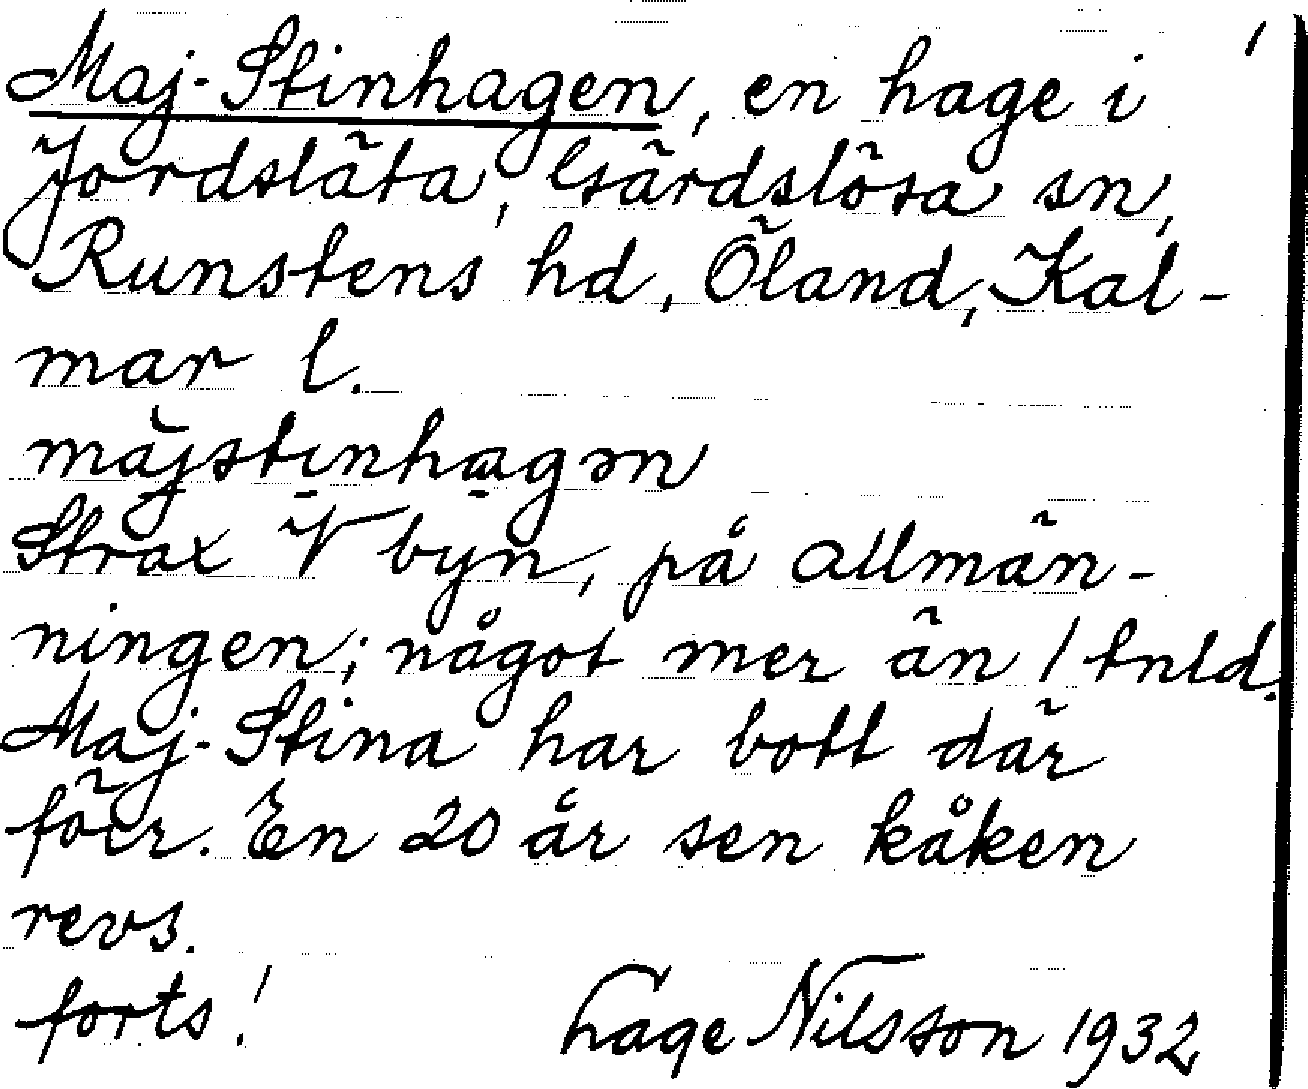 Maj-Stinhagen, en hage i
Jordsläta, Gärdslösa sn,
Runstens hd, Öland, Kal-
mar l.
măjstinhagən
Strax V byn, på allmän-
ningen; något mer än 1 tnld.
Maj-Stina har bott där
förr. En 20 år sen kåken
revs.
forts! Hage Nilsson 1932